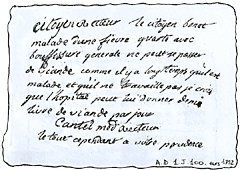 citoyen docteur le citoyen benet
malade dune fievre quarte avec
bouffissure generale ne peut se passer
de viande comme il y a longtemps qu'il est
malade et qu'il ne travaille pas je crois
que l'hopital peut lui donner demie
livre de viande par jour
le tout cependant a votre prudence
A.D 1 J 100.